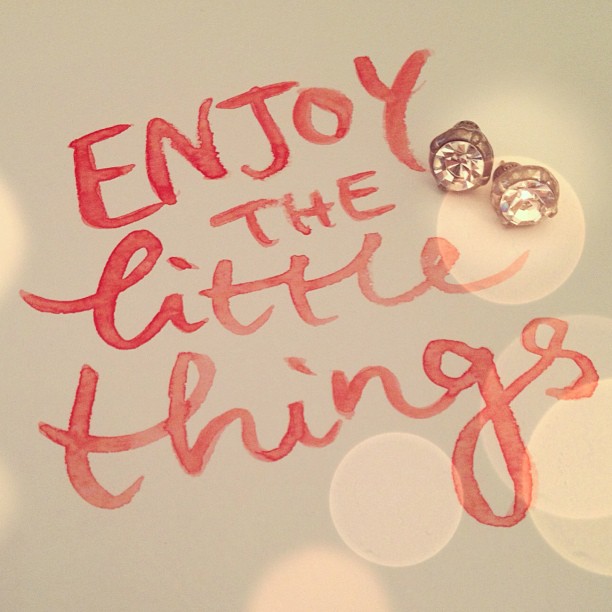 ENJOY
THE
little
things